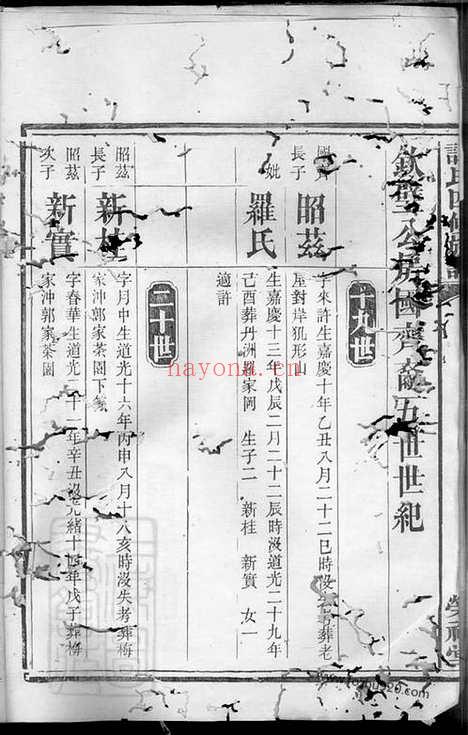 許氏四修族譜
欽聖公房國齊裔五世世紀
十九世
國齊
長子
昭茲
字來許生嘉慶十年乙丑八月二十二巳時沒失考葬老
屋對岸犯形山
妣
羅氏
生嘉慶十三年戊辰二月二十二辰時沒道光二十九年
己酉葬丹洲羅家岡 生子二 新桂 新實 女一
適許
二十世
昭茲
長子
新桂
字月中生道光十六年丙申八月十八亥時沒失考葬梅
家沖郭家茶園下
昭茲
次子
新實
字春華生道光二十一年辛丑沒光緒十四年戊子葬梅
家沖郭家茶園
hayona.com